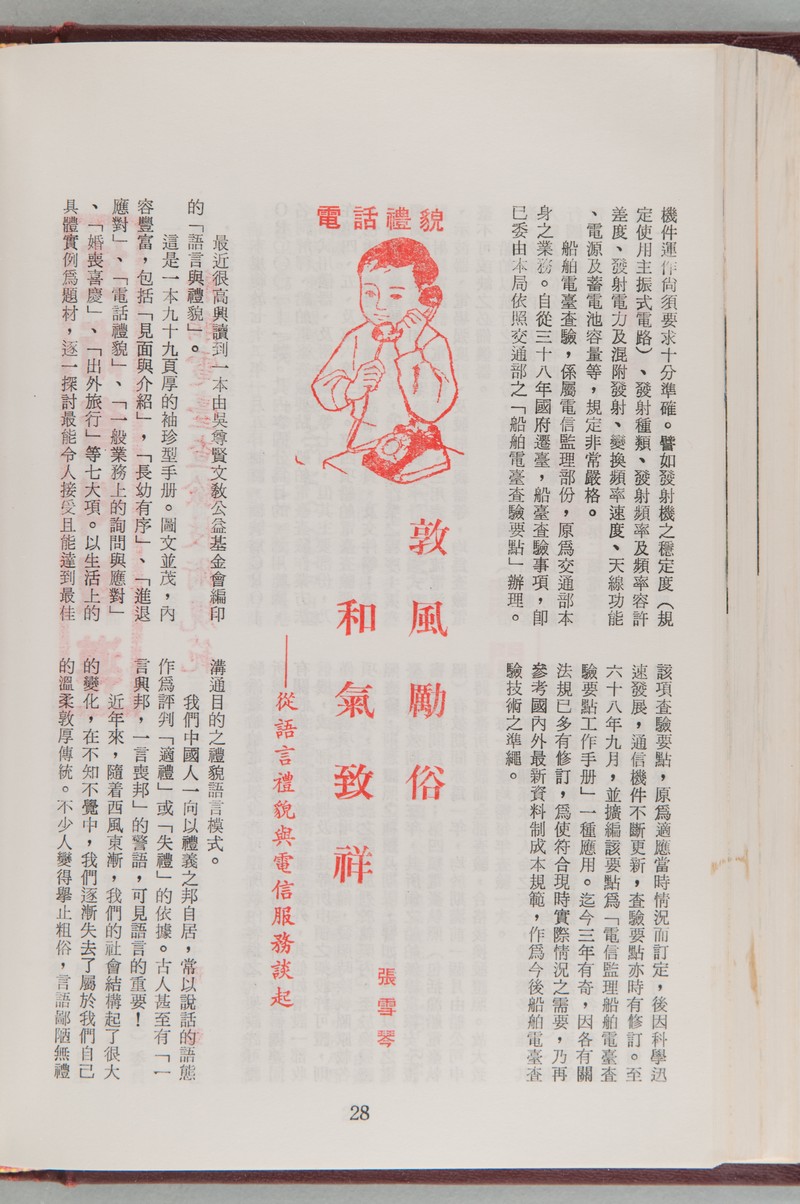 機件運作尙須要求十分準確。譬如發射機之穩定度（規
定使用主振式電路）、發射種類、發射頻率及頻率容許
差度、發射電力及混附發射、變換頻率速度、天線功能
、電源及蓄電池容量等，規定非常嚴格。
船舶電臺查驗，係屬電信監理部份，原爲交通部本
身之業務。自從三十八年國府遷臺，船臺查驗事項，卽
已委由本局依照交通部之「船舶電臺查驗要點」辦理。
該項查驗要點，原爲適應當時情況而訂定，後因科學迅
速發展，通信機件不斷更新，查驗要點亦時有修訂。至
六十八年九月，並擴編該要點爲「電信監理船舶電臺查
驗要點工作手册」一種應用。迄今三年有奇，因各有關
法規已多有修訂，爲使符合現時實際情況之需要，乃再
參考國內外最新資料制成本規範，作爲今後船舶電臺查
驗技術之準繩。
電話禮貌
敦風勵俗
和氣致祥
——從語言禮貌與電信服務談起
張雪琴
最近很高興讀到一本由吳尊賢文教公益基金會編印
的「語言與禮貌」。
這是一本九十九頁厚的袖珍型手册。圖文並茂，內
容豐富，包括「見面與介紹」，「長幼有序」、「進退
應對」、「電話禮貌」、「一般業務上的詢問與應對」
、「婚喪喜慶」、「出外旅行」等七大項。以生活上的
具體實例爲題材，逐一探討最能令人接受且能達到最佳
溝通目的之禮貌語言模式。
我們中國人一向以禮義之邦自居，常以說話的語態
作爲評判「適禮」或「失禮」的依據。古人甚至有「一
言興邦，一言喪邦」的警語，可見語言的重要！
近年來，隨着西風東漸，我們的社會結構起了很大
的變化，在不知不覺中，我們逐漸失去了屬於我們自己
的溫柔敦厚傳統。不少人變得擧止粗俗，言語鄙陋無禮
28